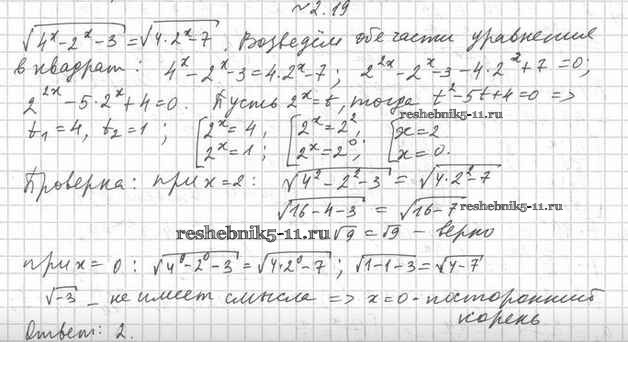 №2.19
√(4ˣ-2ˣ-3) = √(4·2ˣ-7). Возведём обе части уравнения
в квадрат: 4ˣ-2ˣ-3=4·2ˣ-7; 2²ˣ-2ˣ-3-4·2ˣ+7=0;
2²ˣ-5·2ˣ+4=0. Пусть 2ˣ=t, тогда t²-5t+4=0 =>
reshebnik5-11.ru
t₁=4, t₂=1; [2ˣ=4, [2ˣ=2², [x=2
2ˣ=1; 2ˣ=2⁰; x=0.
Проверка: при x=2: √(4²-2²-3) = √(4·2²-7)
√(16-4-3) = √(16-7)
reshebnik5-11.ru √9=√9 - верно
при x=0: √(4⁰-2⁰-3)=√(4·2⁰-7); √(1-1-3)=√(4-7)
√-3 - не имеет смысла => x=0-посторонний
корень
Ответ: 2.